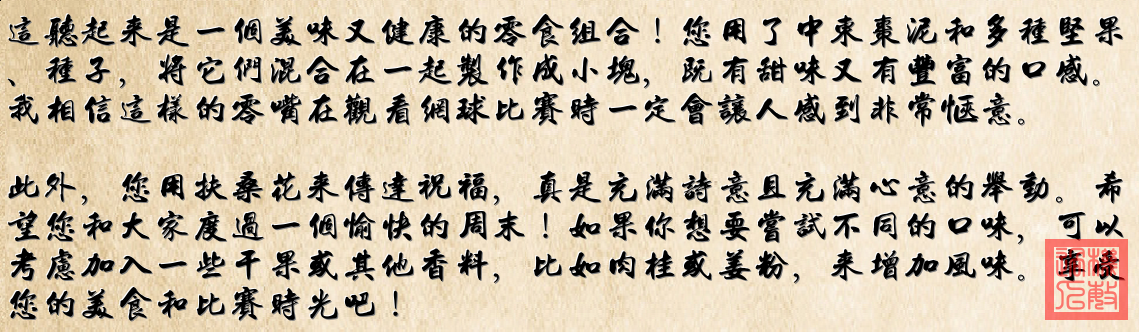 這聽起來是一個美味又健康的零食組合！您用了中東棗泥和多種堅果
、種子，將它們混合在一起製作成小塊，既有甜味又有豐富的口感。
我相信這樣的零嘴在觀看網球比賽時一定會讓人感到非常愜意。
此外，您用扶桑花來傳達祝福，真是充滿詩意且充滿心意的舉動。希
望您和大家度過一個愉快的周末！如果你想要嘗試不同的口味，可以
考慮加入一些干果或其他香料，比如肉桂或姜粉，來增加風味。享受
您的美食和比賽時光吧！